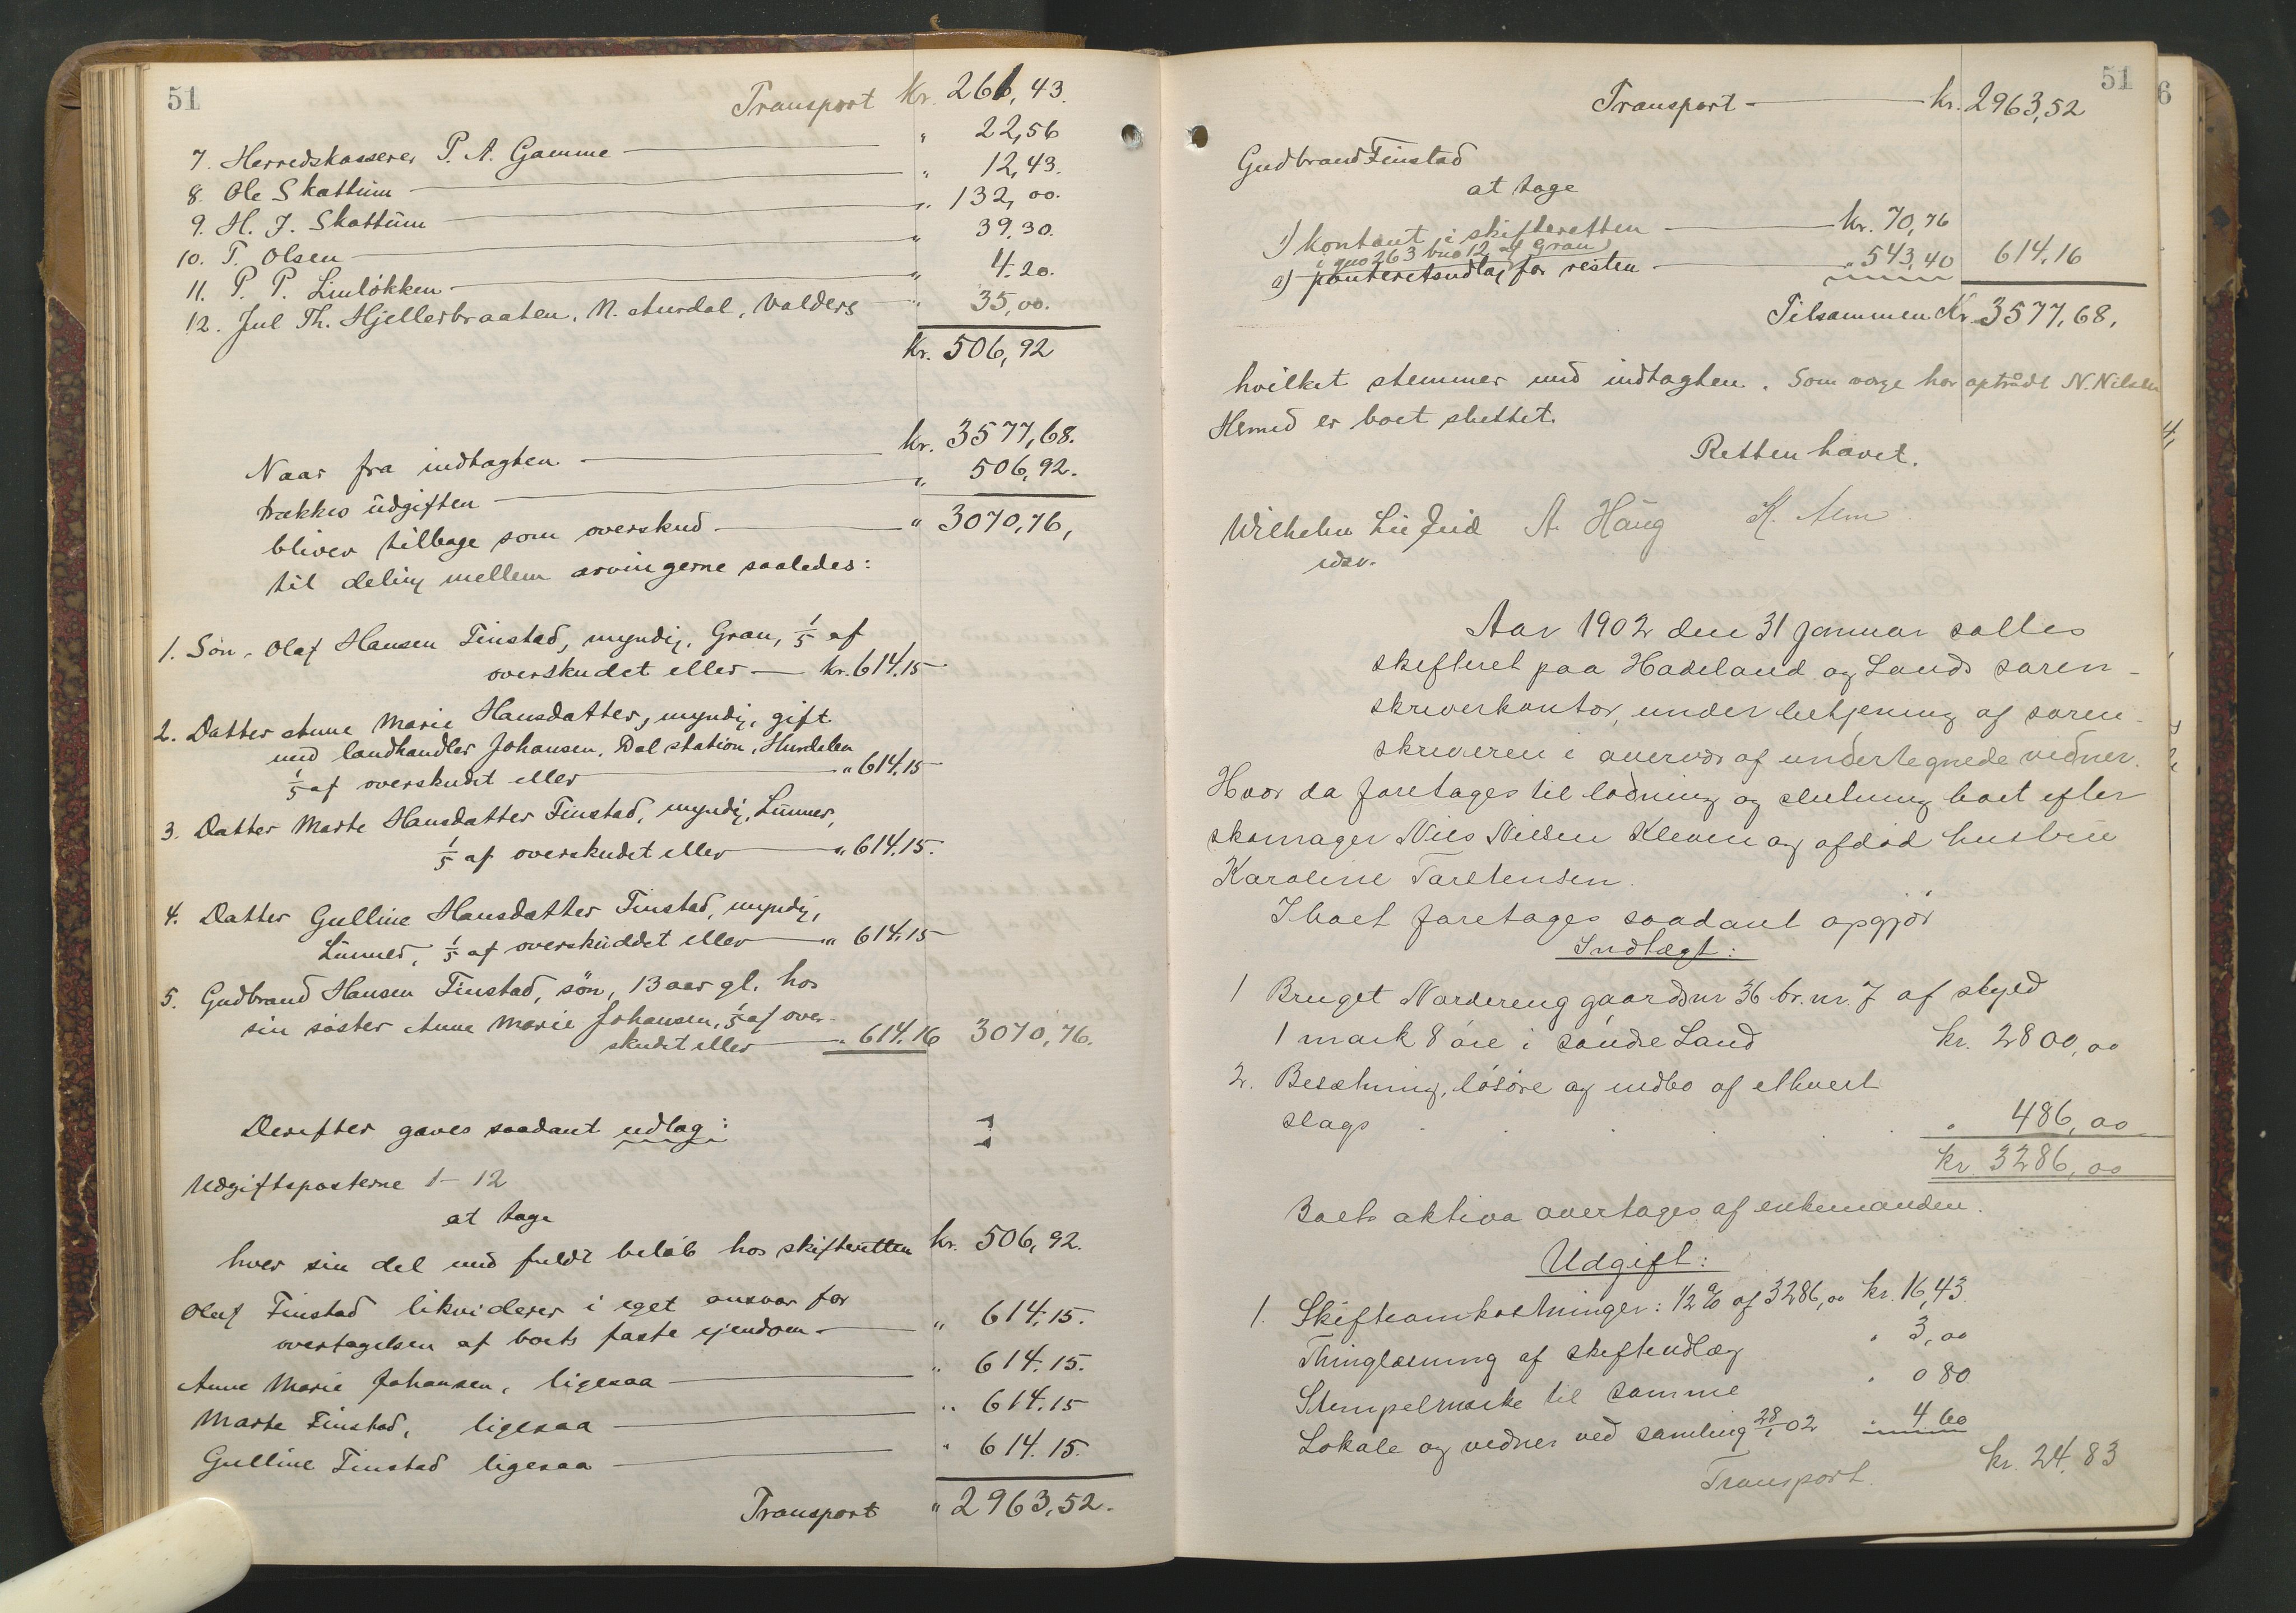 51
Transport Kr. 261,43.
7. Herredskasserer P. A. Gamme " 22,56
8. Ole Skattum " 12,43.
9. H. J. Skattum " 132,00.
10. T. Olsen " 39.30.
11. P. P. Linløkken " 4.20.
12. Jul Th. Hjellerbraaten, N. Aurdal, Valders " 35,00.
Kr. 506,92
Naar fra indtægten kr. 3577,68.
trækkes udgiften " 506,92.
bliver tilbage som overskud " 3070,76,
til deling mellem arvingerne saaledes:
1. Søn, Olaf Hansen Finstad, myndig, Gran, 1/5 af
overskudet eller kr. 614.15
2. Datter Anne Marie Hansdatter, myndig, gift
med landhandler Johansen, Dal station, Hurdalen
1/5 af overskudet eller " 614.15
3. Datter Marte Hansdatter Finstad, myndig, Lunner,
1/5 af overskudet eller " 614.15.
4. Datter Gulline Hansdatter Finstad, myndig,
Lunner, 1/5 af overskuddet eller " 614.15
5. Gudbrand Hansen Finstad, søn, 13 aar gl. hos
sin søster Anne Marie Johansen, 1/5 af over-
skudet eller " 614.16 3070,76.
Derefter gaves saadant udlæg:
Udgiftsposterne 1-12
at tage
hver sin del med fuldt beløb hos skifteretten kr. 506,92.
Olaf Finstad likviderer i eget ansvar for
overtagelsen af boets faste ejendom " 614.15.
Anne Marie Johansen, ligesaa " 614.15.
Marte Finstad, ligesaa " 614.15
Gulline Finstad ligesaa " 614.15.
Transport " 2963,52.
51
6
Transport kr. 2963,52
Gudbrand Finstad
at tage
1) kontant i skifteretten kr. 70,76
i gno 263 bno 12 af Gran
2) panteretsudlæg for resten " 543,40 614.16
Tilsammen Kr. 3577,68,
hvilket stemmer med indtægten. Som værge har optrådt N. Nilsen
Hermed er boet sluttet.
Retten hævet.
Wilhelm Lie A. Haug K. Alm
Aar 1902 den 31 januar sattes
skifteret paa Hadeland og Lands soren-
skriverkontor, under betjening af soren-
skriveren i overvær af undertegnede vidner.
Hvor da foretages til lodning og slutning boet efter
skomager Nils Nilsen Kleven og afdød hustru
Karoline Torstensen.
I boet foretages saadant opgjør
Indtægt:
1 Bruget Nordereng gaardsnr 36 br. nr. 7 af skyld
1 mark 8 øre i søndre Land kr. 2800,00
2. Besætning, løsøre og indbo af ethvert
slags " 486,00
kr. 3286,00
Boets aktiva overtages af enkemanden.
Udgift:
1. Skifteomkostninger: 1/2 % af 3286,00 kr. 16,43
Thinglæsning af skifteudlæg " 3,00
Stempelmærke til samme " 0 80
Lokale og vidner ved samling 28/1 02 " 4 60
kr. 24,83
Transport.